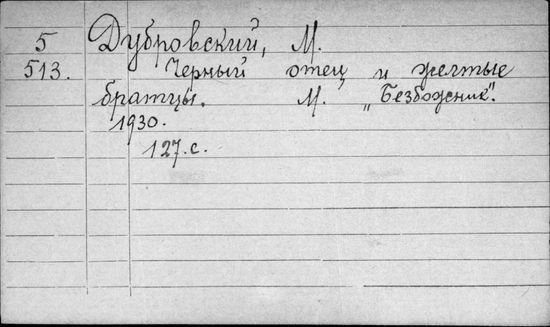 5 Дубровский, М.
513. Черный отец и желтые
братцы. М. „Безбожник".
1930.
127.с.